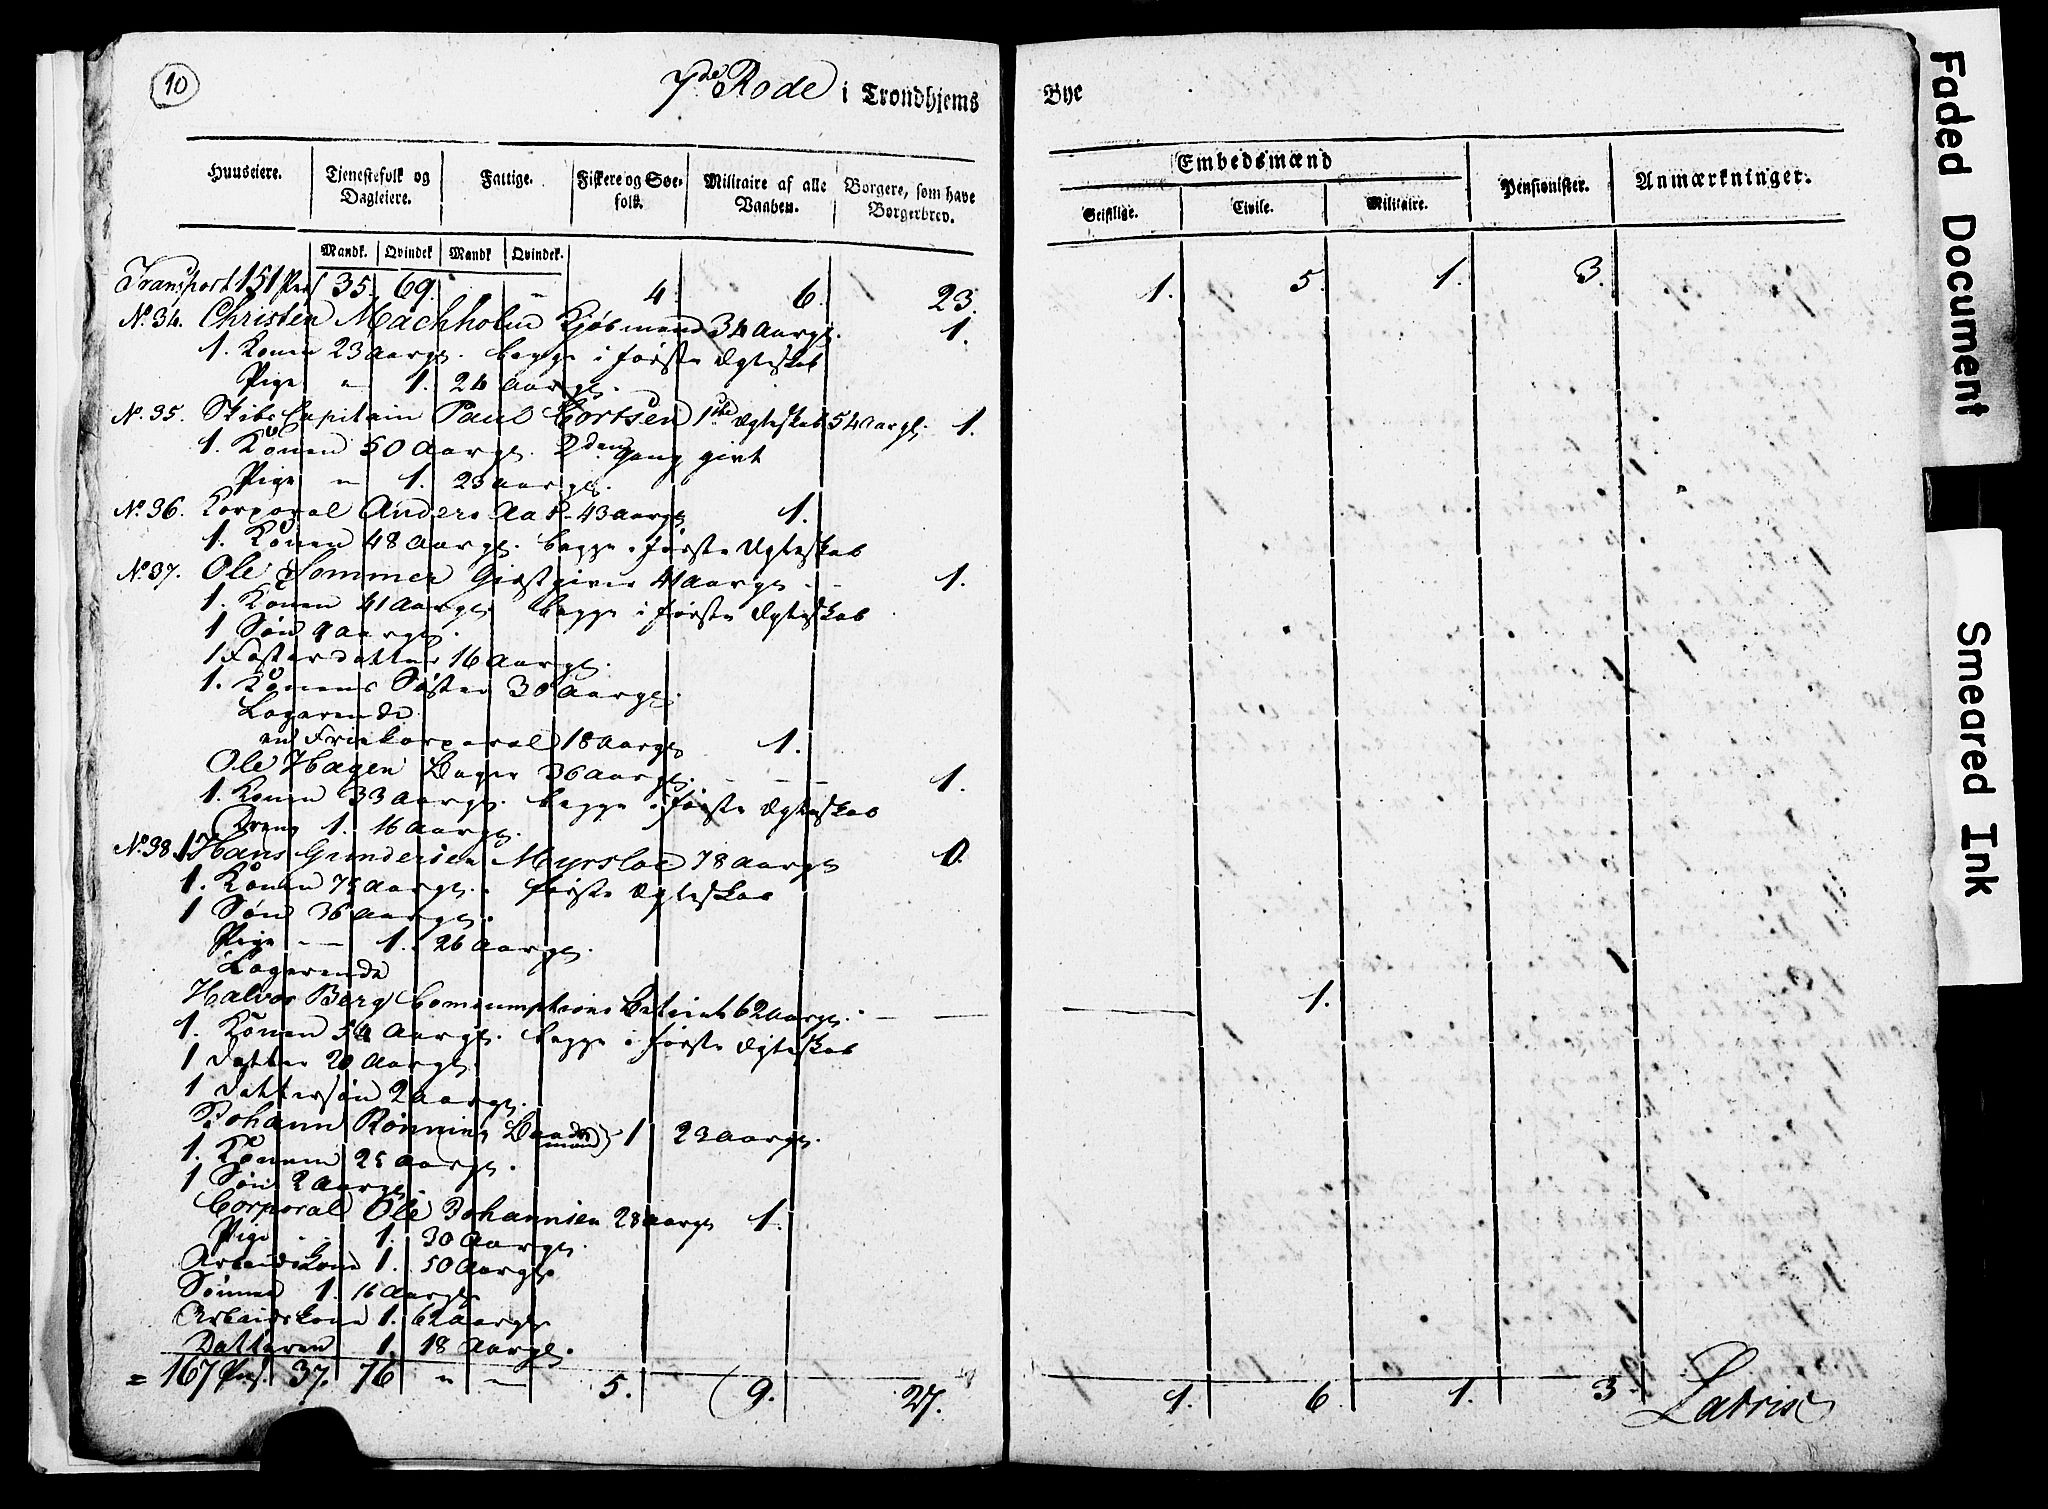 10
7de Rode i Trondhjems Bye
Huuseiere. Tjenestefolk og Dagleiere. Fattige. Fiskere og Søe-folk. Militaire af alle Vaaben. Borgere, som have Borgerbrev. Embedsmænd Pensionister. Anmærkninger.
Geistlige. Civile. Militaire.
Mandk. Qvindek Mandk Qvindek.
Transport 151 Pers 35. 69. 4. 6. 23. 1. 5. 1. 3.
No. 34. Christen Machholm Kjøbmand 34 Aargl. 1.
1. Konen 23 Aargl. begge i første Ægteskab
Pige " 1. 24 Aargl.
No. 35. Skibs Capitain Paul Cortsen 1ste Ægteskab 54 Aargl. 1.
1. Konen 50 Aargl. 2den Gang givt
Pige " 1. 23 Aargl.
No. 36. Korporal Anders Aas 43 aargl 1.
1. Konen 48 Aargl. begge i første Ægteskab
No. 37. Ole Sommer Giæstgiver 41 Aargl 1.
1. Konen 41 Aargl begge i første Ægteskab
1 Søn 9 aargl.
1 Fosterdatter 16 Aargl.
1. Konens Søster 30 Aargl.
Logerende
en Friekorporal 18 Aargl 1.
Ole Hagen Bager 36 Aargl. 1.
1. Konen 33 Aargl. begge i første Ægteskab
Dreng 1. 16 Aargl.
No. 38. 1 Hans Gundersen Myrsloe 78 Aargl 0.
1. Konen 75 Aargl. første Ægteskab
1 Søn 36 Aargl.
Pige 1. 26 Aargl.
Logerende
Halvor Berg Consumptions Betient 62 Aargl. 1.
1. Konen 54 Aargl. begge i første Ægteskab
1 Datter 20 Aargl.
1 Dattersøn 2 Aargl.
Johann Rønning (Baadsmand) 1 23 Aargl.
1. Konen 25 Aargl.
1 Søn 2 Aargl.
Corporal Ole Johannsen 28 Aargl 1.
Pige 1. 30 Aargl.
Arbeidskone 1. 50 Aargl
Sønnen 1. 16 Aargl
Arbeidskone 1. 62 Aargl
Datteren 1. 18 Aargl.
= 167 Pers. 37. 76 " — 5. 9. 27. 1. 6. 1. 3
Faded Document
Smeared Ink